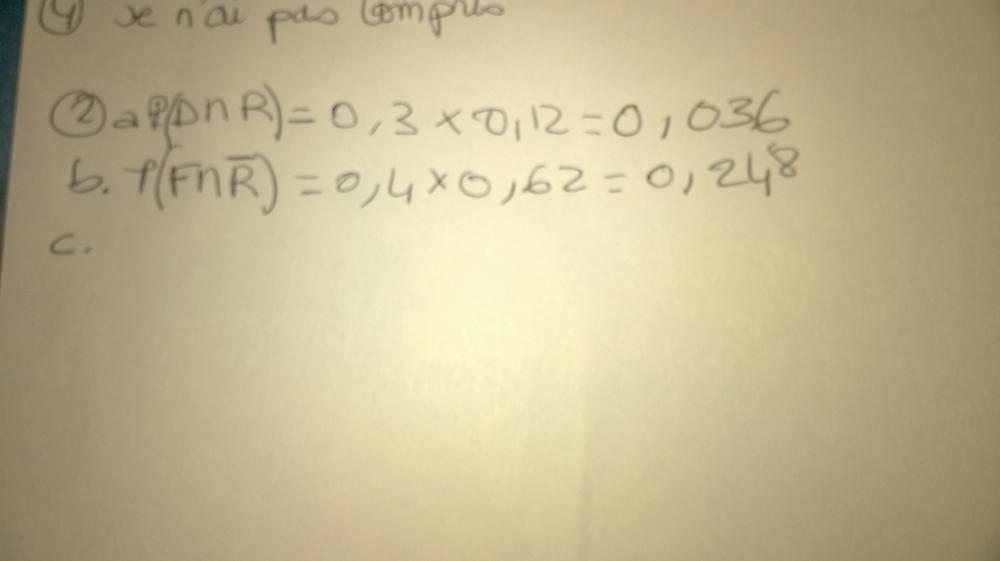 ④ Je n'ai pas compris
② a P(D∩R) = 0,3 × 0,12 = 0,036
b. P(F∩R̅) = 0,4 × 0,62 = 0,248
c.